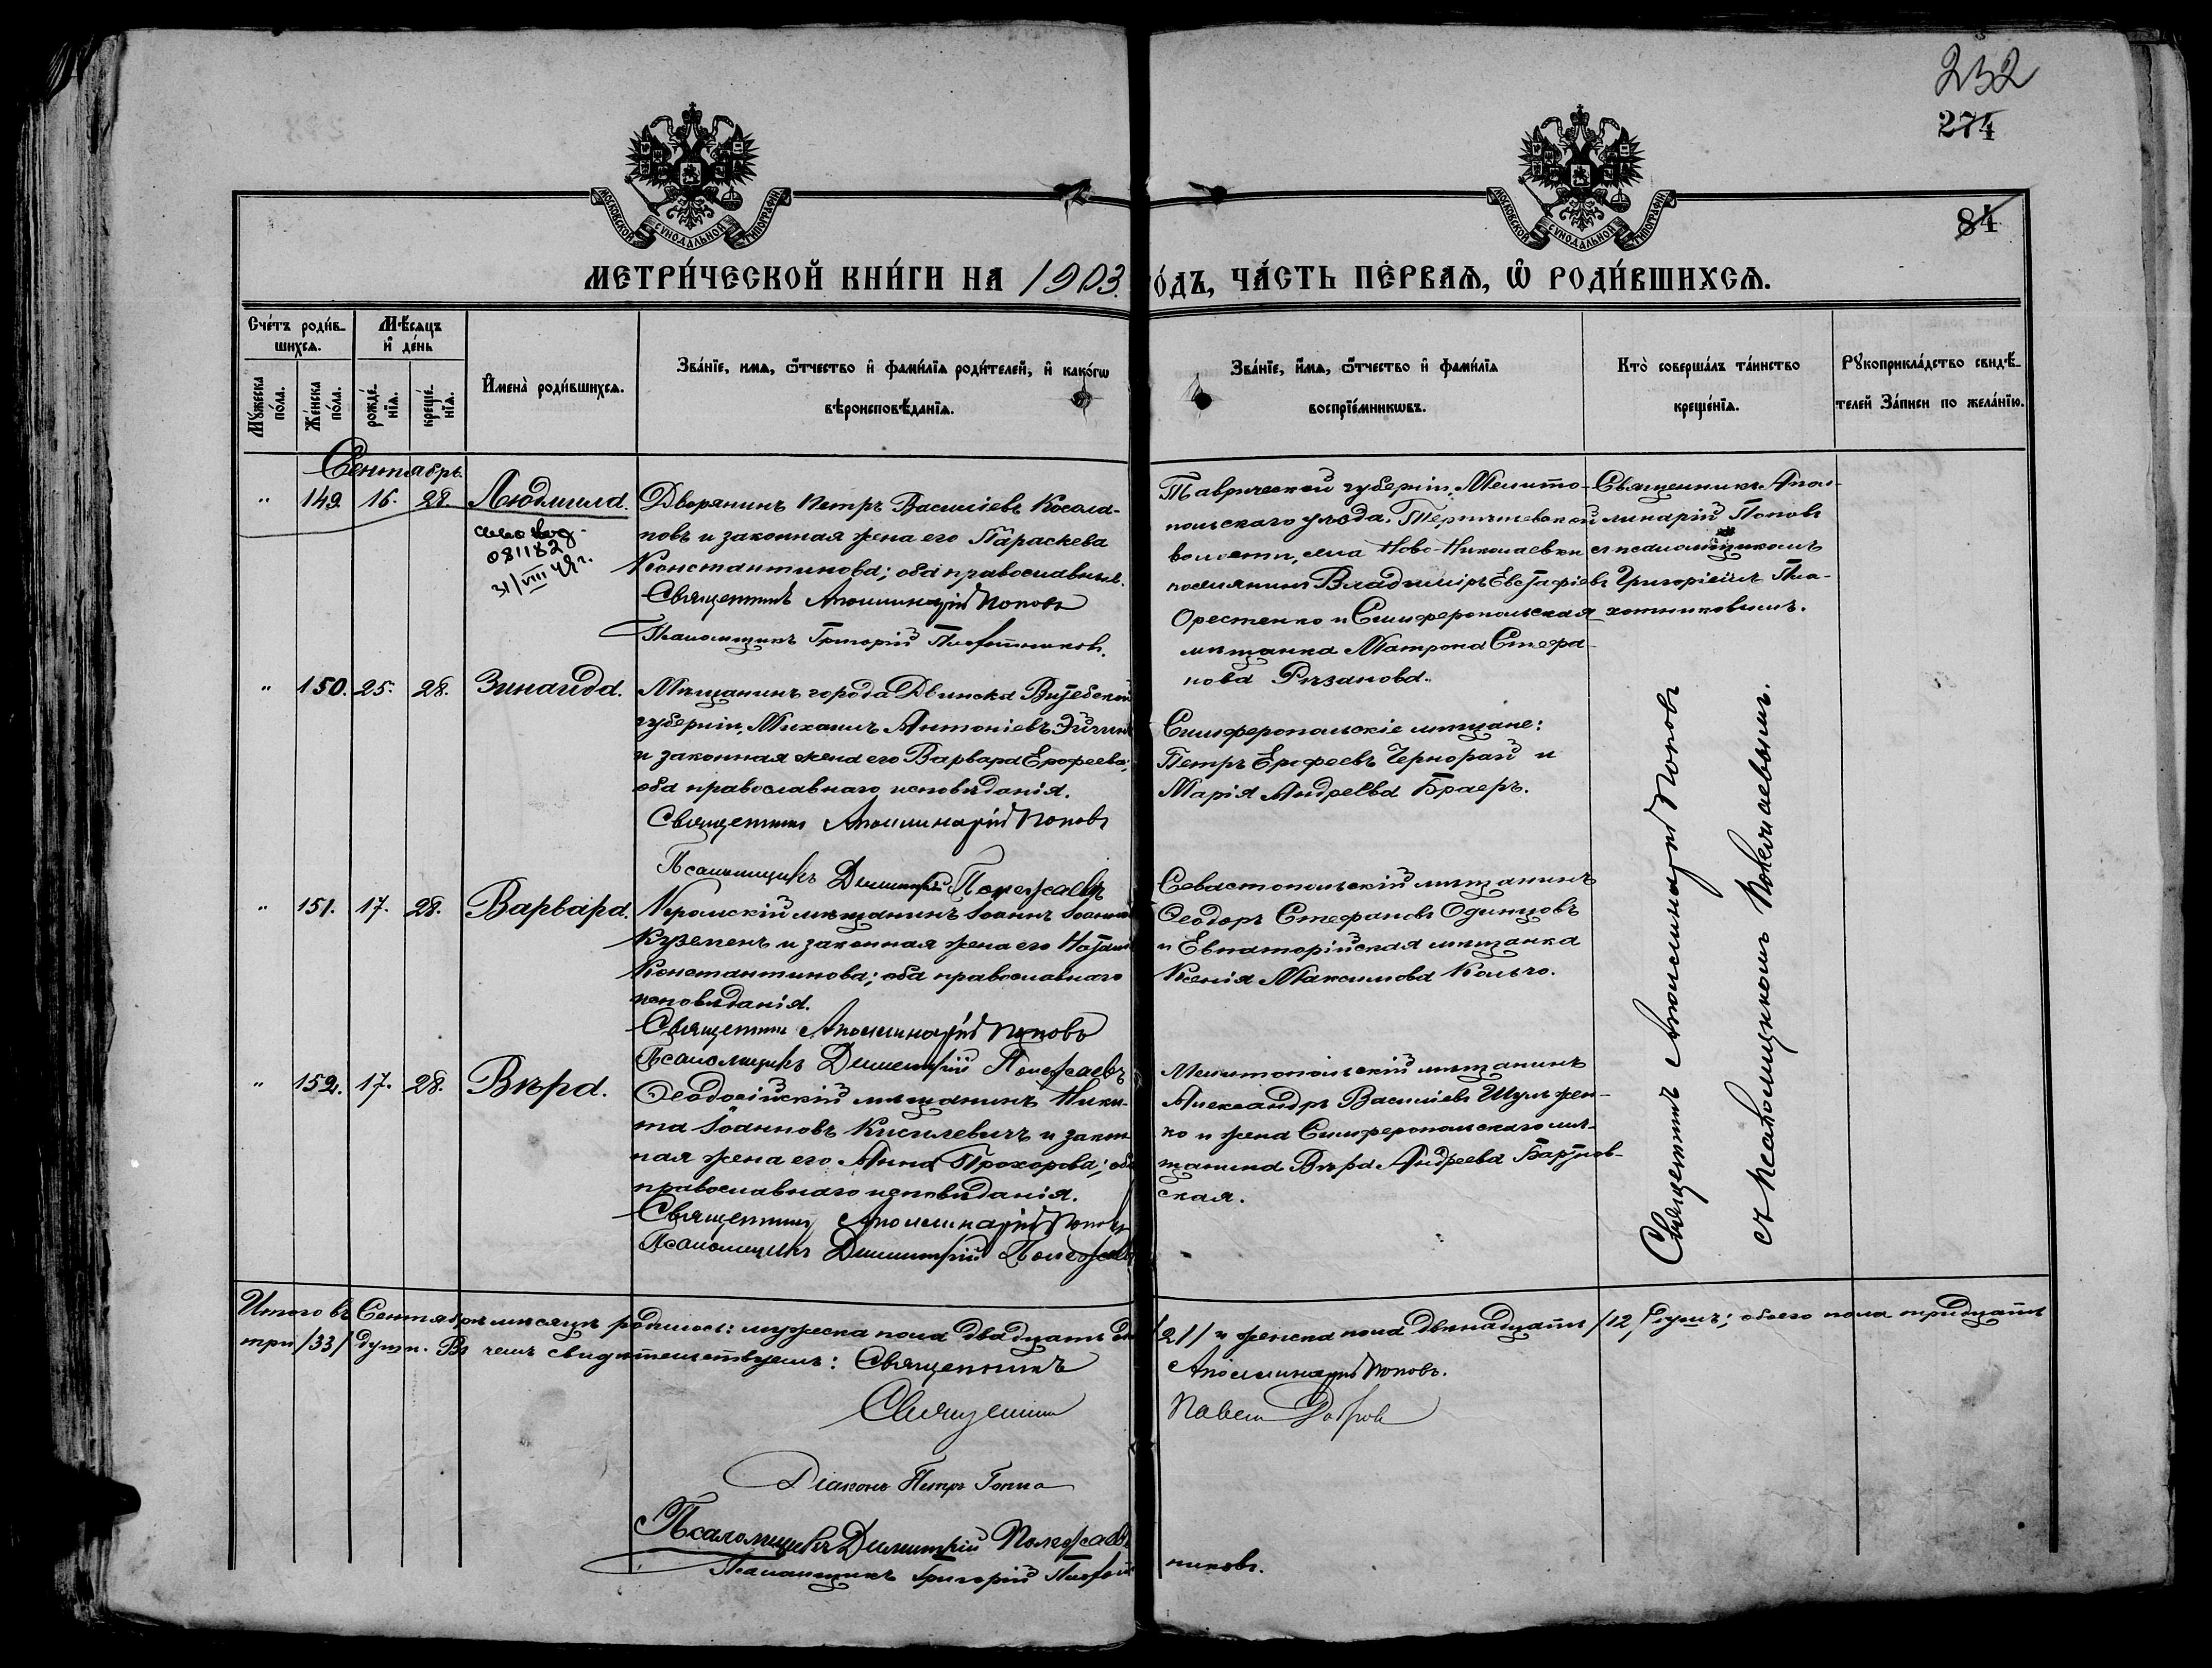 232
274
84
МОСКОВСКОЙ СѴНОДАЛЬНОЙ ТИПОГРАФІИ
МОСКОВСКОЙ СѴНОДАЛЬНОЙ ТИПОГРАФІИ
МЕТРИ́ЧЕСКОЙ КНИ́ГИ НА 1903.
О́ДЪ, ЧА́СТЬ ПЕ́РВАѦ, Ѽ РОДИ́ВШИХСѦ.
Сче́тъ роди́в-
шихсѧ.
Мѣ́сѧцъ
и҆ де́нь
Мꙋ́жеска
по́ла.
Же́нска
по́ла.
рожде́-
нїѧ.
креще́-
нїѧ.
И҆мена̀ роди́вшихсѧ.
Зва́нїе, имѧ, ѻ҆́тчество и҆ фами́лїѧ роди́телей, и҆ како́гѡ
вѣроисповѣ́данїѧ.
Зва́нїе, и҆́мѧ, ѻ҆́тчество и҆ фами́лїѧ
воспрїе́мникѡвъ.
Кто̀ соверша́лъ та́инство
креще́нїѧ.
Рꙋкоприкла́дство свидѣ́-
телей За́писи по жела́нїю.
Сентябрь.
" 149. 16. 28. Людмила.
081182
31/VIII 49 г.
Дворянинъ Петръ Василіевъ Косола-
повъ и законная жена его Параскева
Константинова; оба православные.
Священникъ Аполлинарій Поповъ
Псаломщикъ Григорій Плохотниковъ.
Таврической губерніи, Мелито-
польскаго уѣзда, Терпѣневской
волости, села Ново-Николаевки
поселянинъ Владиміръ Евстафіевъ
Орестенко и Симферопольская
мѣщанка Матрона Стефа-
нова Рѣзанова.
Священникъ Апол-
линарій Поповъ
съ псаломщикомъ
Григоріемъ Пло-
хотниковымъ.
" 150. 25. 28. Зинаида.
Мѣщанинъ города Двинска Витебской
губерніи, Михаилъ Антоніевъ
и законная жена его Варвара Ерофеева;
оба православнаго исповѣданія.
Священникъ Аполлинарій Поповъ
Псаломщикъ Димитрій Полежаевъ
Симферопольскіе мѣщане:
Петръ Ерофеевъ Чернорай и
Марія Андреева Браеръ.
" 151. 17. 28. Варвара.
мѣщанинъ Іоаннъ
и законная жена его
Константинова; оба православнаго
исповѣданія.
Священникъ Аполлинарій Поповъ
Псаломщикъ Димитрій Полежаевъ
Севастопольскій мѣщанинъ
Ѳеодоръ Стефановъ Одинцовъ
и Евпаторійская мѣщанка
Ксенія Максимова Кольчо.
" 152. 17. 28. Вѣра.
Ѳеодосійскій мѣщанинъ Ники-
та Іоанновъ Кисилевичъ и закон-
ная жена его Анна Прохорова; оба
православнаго исповѣданія.
Священникъ Аполлинарій Поповъ
Псаломщикъ Димитрій Полежаевъ
Мелитопольскій мѣщанинъ
Александръ Василіевъ Шульжен-
ко и жена Симферопольскаго мѣ-
щанина Вѣра Андреева
ская.
Священникъ Аполлинарій Поповъ
съ Псаломщикомъ Полежаевымъ.
Итого въ Сентябрѣ мѣсяцѣ родилось: мужеска пола двадцать
/21/ и женска пола двѣнадцать /12/ душъ; обоего пола тридцать
три /33/ души. Въ чемъ свидѣтельствуемъ: Священникъ
Аполлинарій Поповъ.
Священникъ Павелъ
Діаконъ Петръ
Псаломщикъ Димитрій Полежаевъ
Псаломщикъ Григорій Плохот
никовъ.